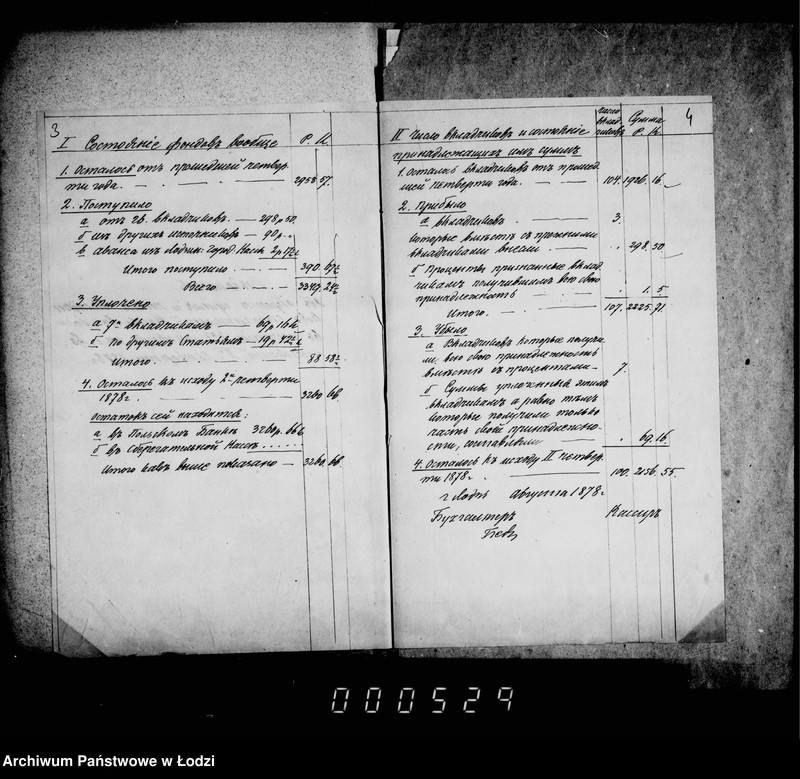 3
I Состояніе фондовъ вообще Р. К.
1. Осталось отъ прошедшей четвер-
ти года. — 2958 57.
2. Поступило
а отъ 26. вкладчиковъ. — 298 р 50
б изъ другихъ источниковъ — 90 р. „
в аванса изъ Лодзин. Город. Кассы 2 р 17½
Итого поступило — 390. 67½
Всего — 3349. 24½
3. Уплочено
а 7ми вкладчикамъ — 69 р 16 к
б по другимъ Статьямъ — 19 р 42½ к
Итого. — 88 58½
4. Осталось къ исходу 2й четверти
1878 г. — 3260 66.
остатокъ сей находится:
а въ Польскомъ Банкѣ 3260 р. 66 к
б въ сберегательной Кассѣ . . . . .
Итого какъ выше показано — 3260. 66.
4
II Число вкладчиковъ и состояніе
принадлежащихъ имъ суммъ
Число вклад-чиковъ
Сумма Р. К.
1. Осталось вкладчиковъ отъ прошед-
шей четверти года. — 104. 1926. 16.
2. Прибыло
а вкладчиковъ — 3.
которые вмѣстѣ съ прежними
вкладчиками внесли — „ 298. 50
б Проценты, признанные вклад-
чикамъ получившимъ всю свою
принадлежность — „ 1. 5
Итого. — 107. 2225. 71.
3. Убыло
а Вкладчиковъ которые получи-
ли всю свою принадлежность
вмѣстѣ съ процентами — 7.
б Суммы уплоченныя этимъ
вкладчикамъ а равно тѣмъ
которые получили только
часть своей принадлежно-
сти, составляли — „ 69. 16.
4. Осталось къ исходу II четвер-
ти 1878 г. — 100. 2156. 55.
г Лодзь Августа 1878 г
Бухгалтеръ Кассиръ
000529
Archiwum Państwowe w Łodzi